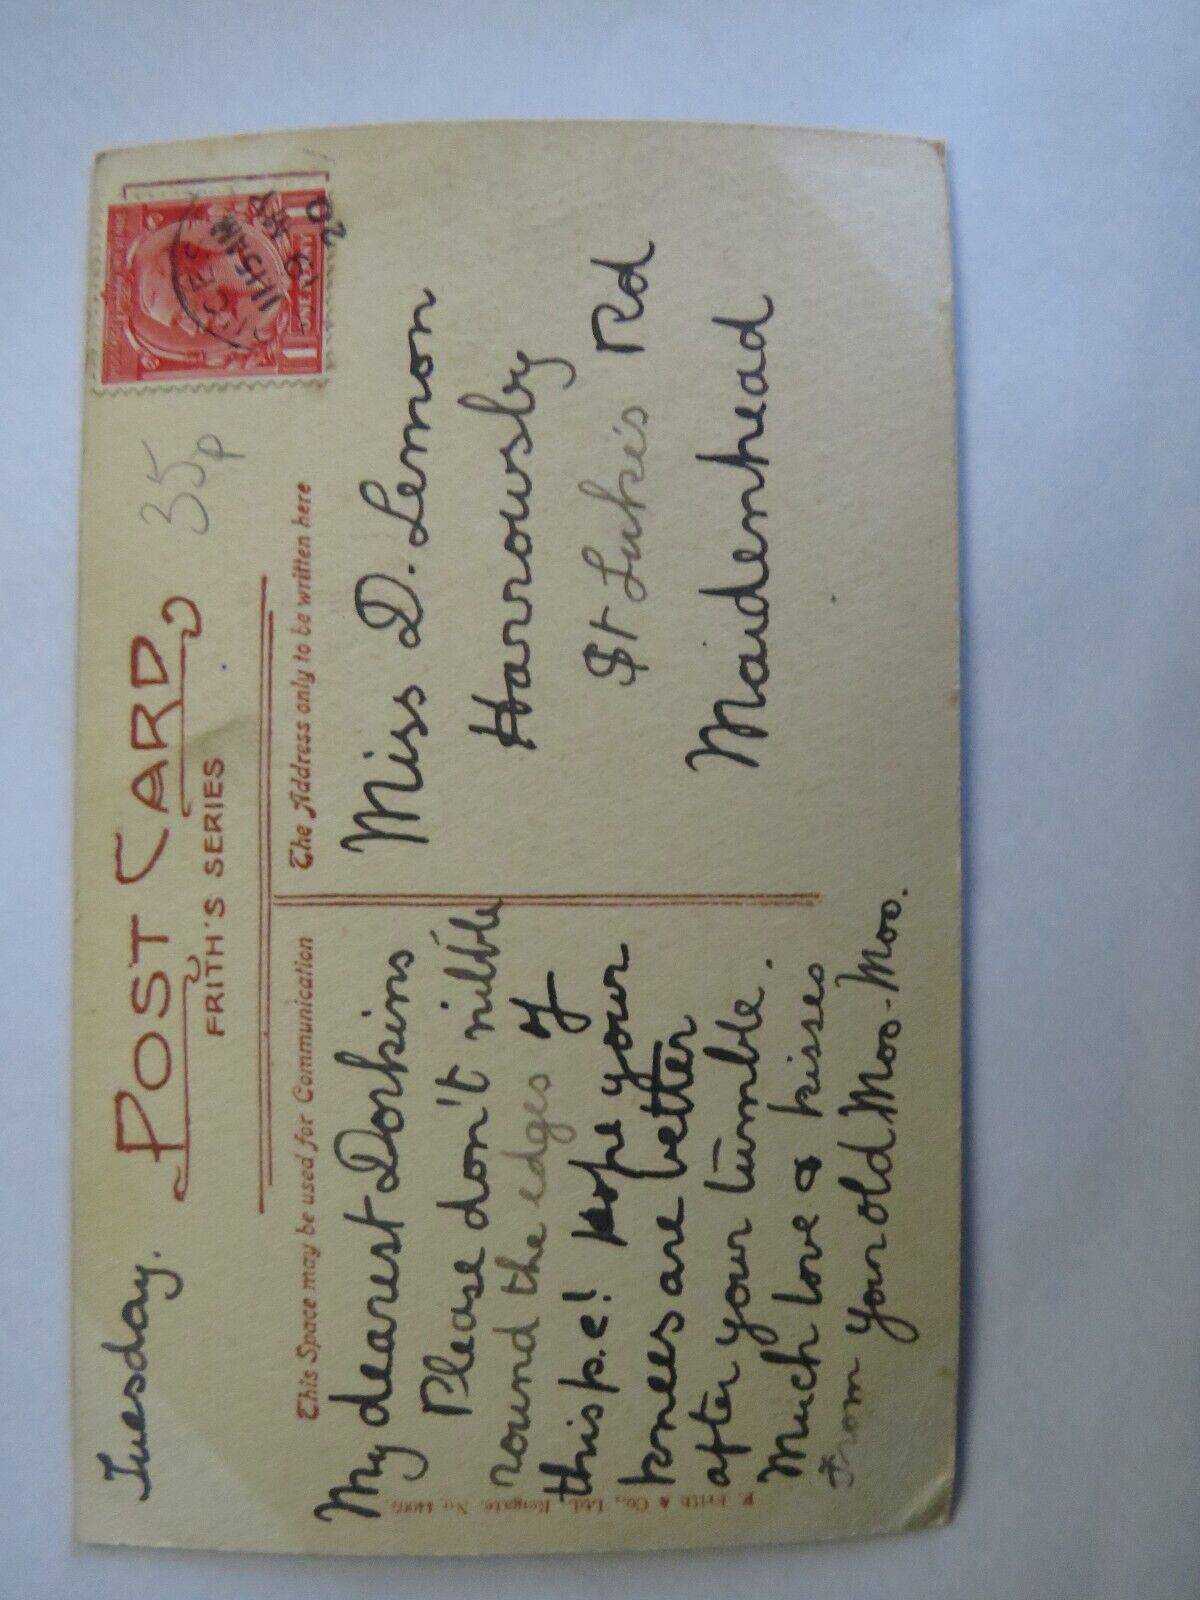 Tuesday.
POST CARD
FRITH'S SERIES
35p
This Space may be used for Communication
The Address only to be written here
My dearest Dorkins
Please don't nibble
round the edges of
this p.c! hope your
knees are better
after your tumble.
Much love & kisses
from your old Moo-Moo.
Miss D. Lemon
Harrowsby
St Luke's Rd
Maidenhead
11.45 AM
19 AP
20
F. Frith & Co., Ltd. Reigate. No.